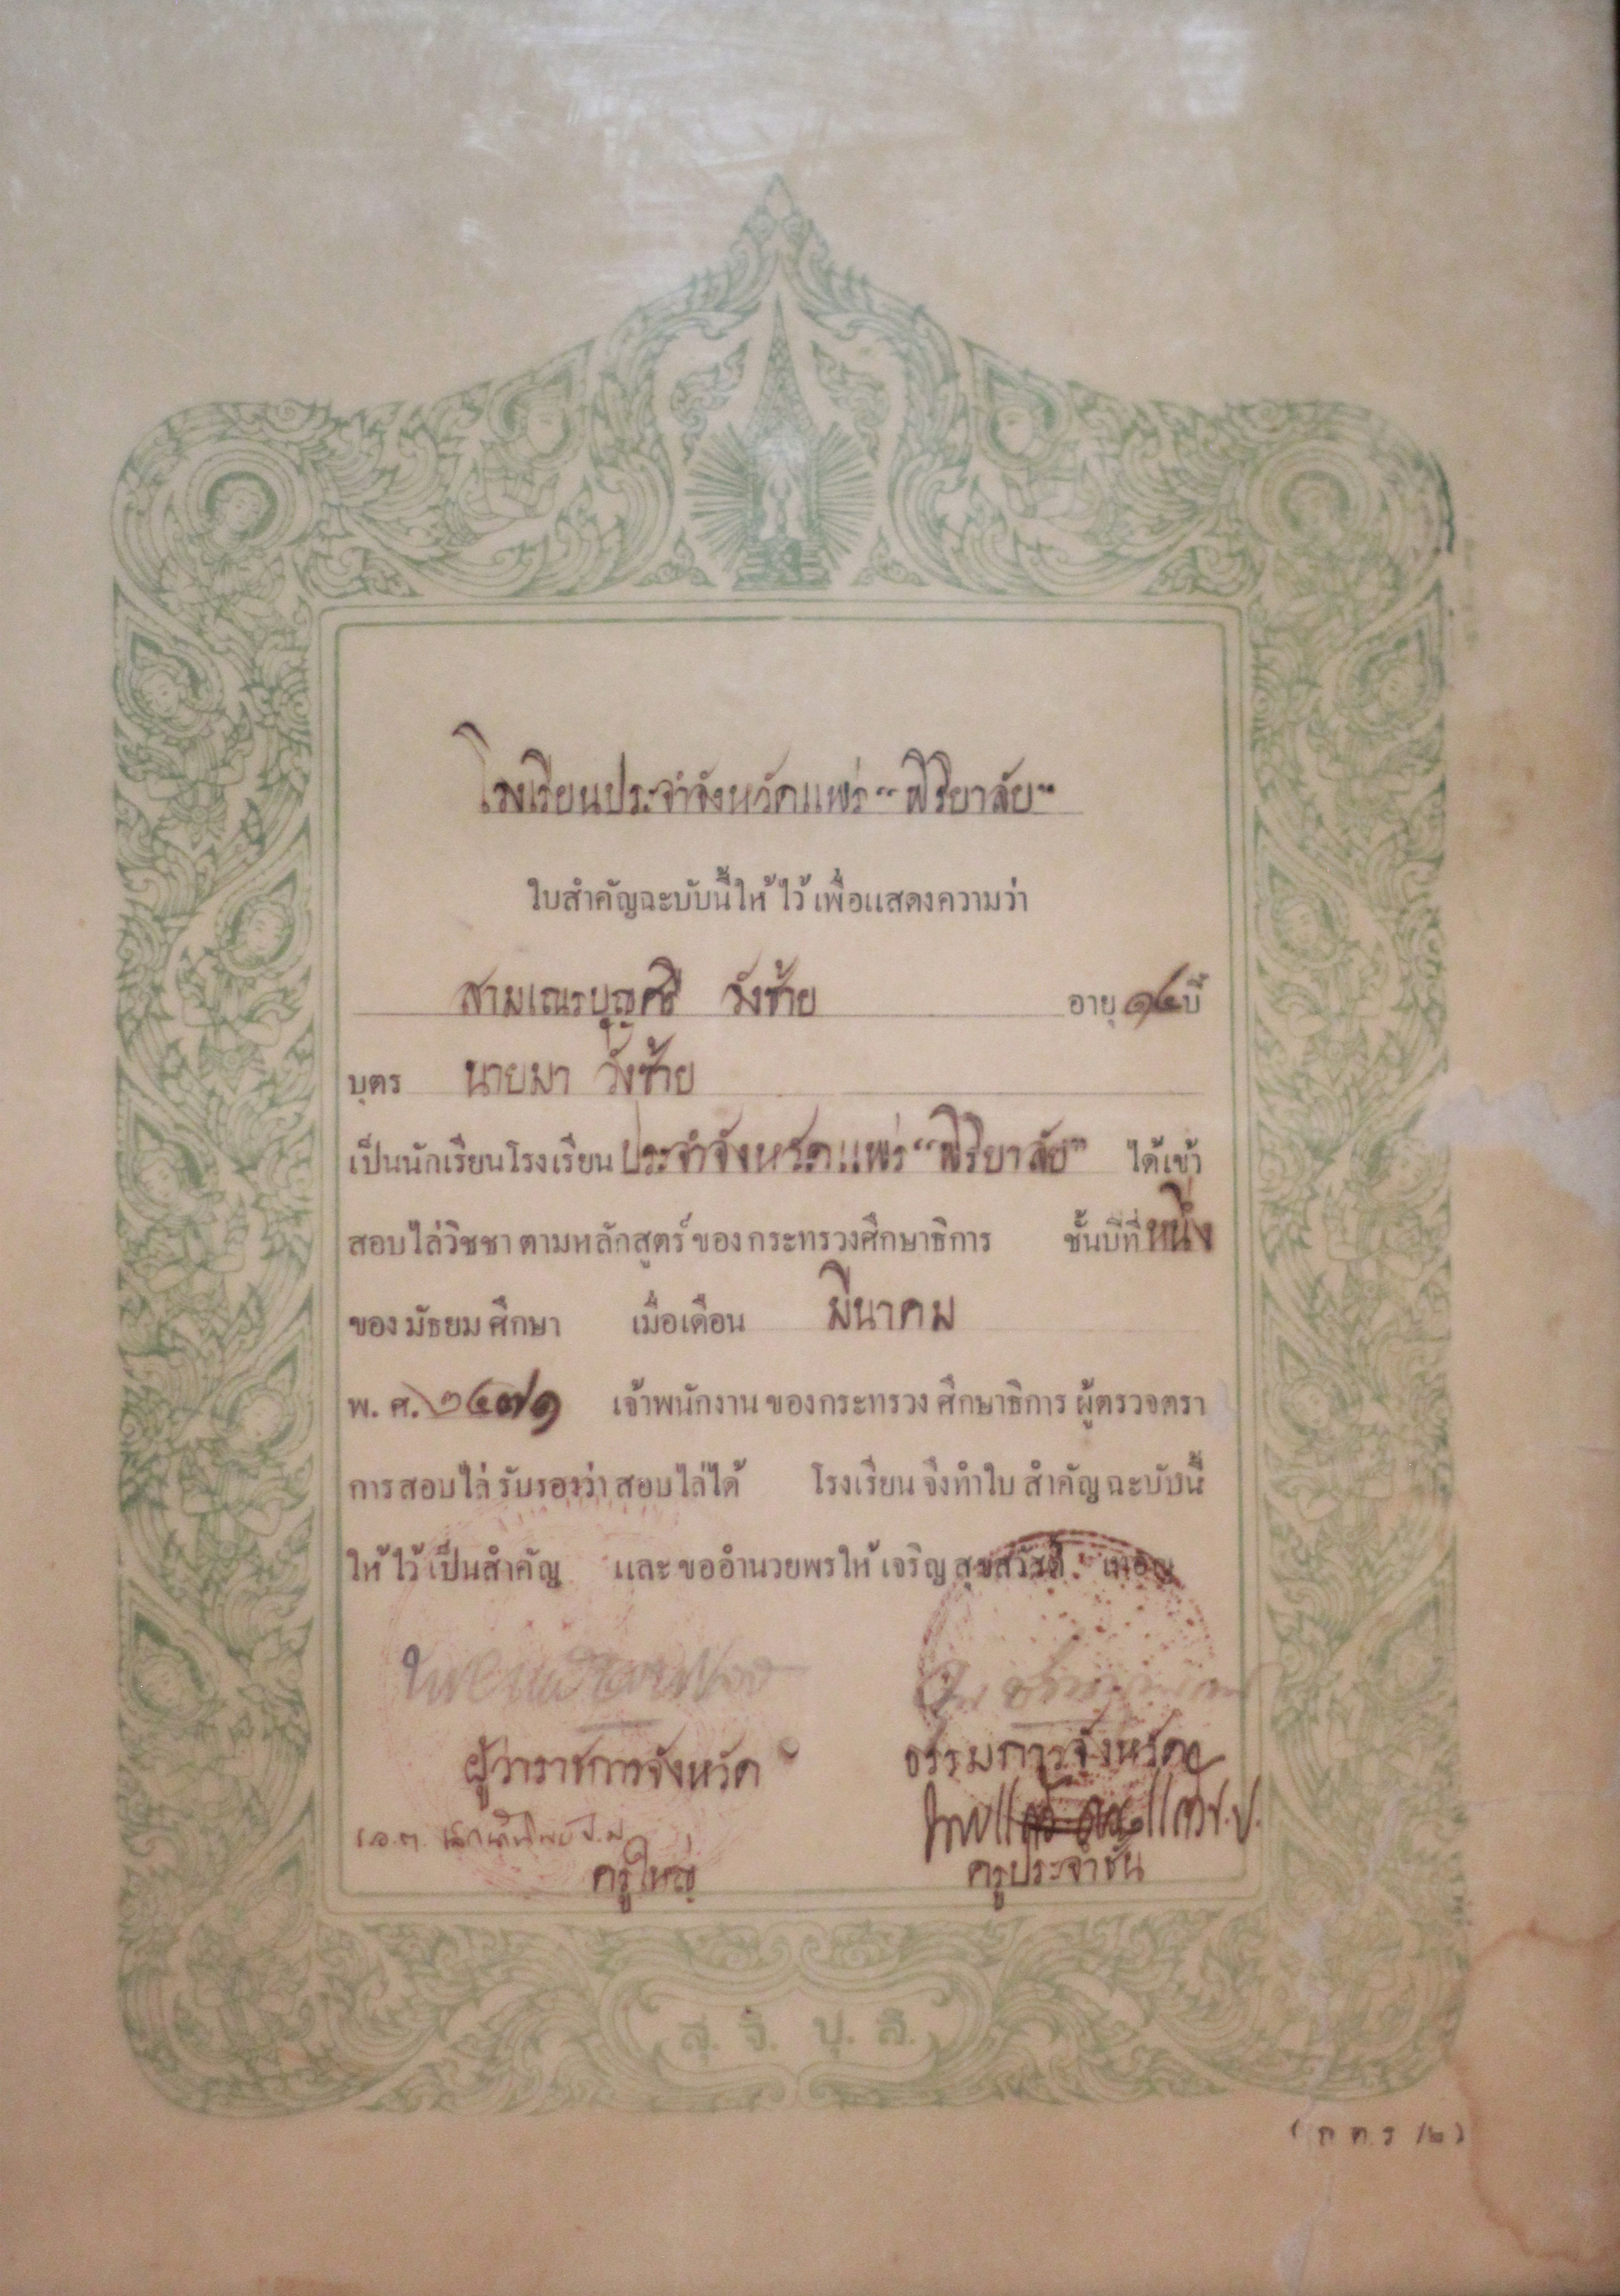 โรงเรียนประจำจังหวัดแพร่ "พิริยาลัย"
ใบสำคัญฉะบับนี้ให้ไว้เพื่อแสดงความว่า
สามเณรบุญศรี วังซ้าย อายุ ปี
บุตร นายมา วังซ้าย
เป็นนักเรียนโรงเรียนประจำจังหวัดแพร่ "พิริยาลัย" ได้เข้า
สอบไล่วิชชาตามหลักสูตร์ของกระทรวงศึกษาธิการ ชั้นปีที่หนึ่ง
ของมัธยมศึกษา เมื่อเดือน มีนาคม
พ.ศ. ๒๔๗๑ เจ้าพนักงานของกระทรวงศึกษาธิการ ผู้ตรวจตรา
การสอบไล่ รับรองว่า สอบไล่ได้ โรงเรียนจึงทำใบสำคัญฉะบับนี้
ให้ไว้เป็นสำคัญ และขออำนวยพรให้เจริญสุขสวัสดิ์ เทอญ
ผู้ว่าราชการจังหวัด ธรรมการจังหวัด
ครูใหญ่ ครูประจำชั้น
สุ. จิ. ปุ. ลิ.